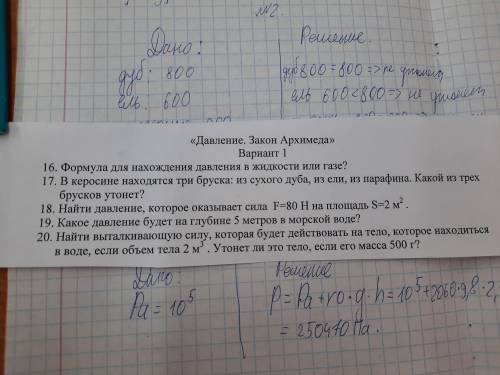 №2.
Дано:
Решение.
дуб: 800
дуб 800=800 => не утонет
ель: 600
ель 600<800 => не утонет
«Давление. Закон Архимеда»
Вариант 1
16. Формула для нахождения давления в жидкости или газе?
17. В керосине находятся три бруска: из сухого дуба, из ели, из парафина. Какой из трех
брусков утонет?
18. Найти давление, которое оказывает сила F=80 Н на площадь S=2 м².
19. Какое давление будет на глубине 5 метров в морской воде?
20. Найти выталкивающую силу, которая будет действовать на тело, которое находиться
в воде, если объем тела 2 м³ . Утонет ли это тело, если его масса 500 г?
Дано:
Решение
Pa = 10⁵
P = Pa + ro · g · h = 10⁵ +
= 250470 Па.